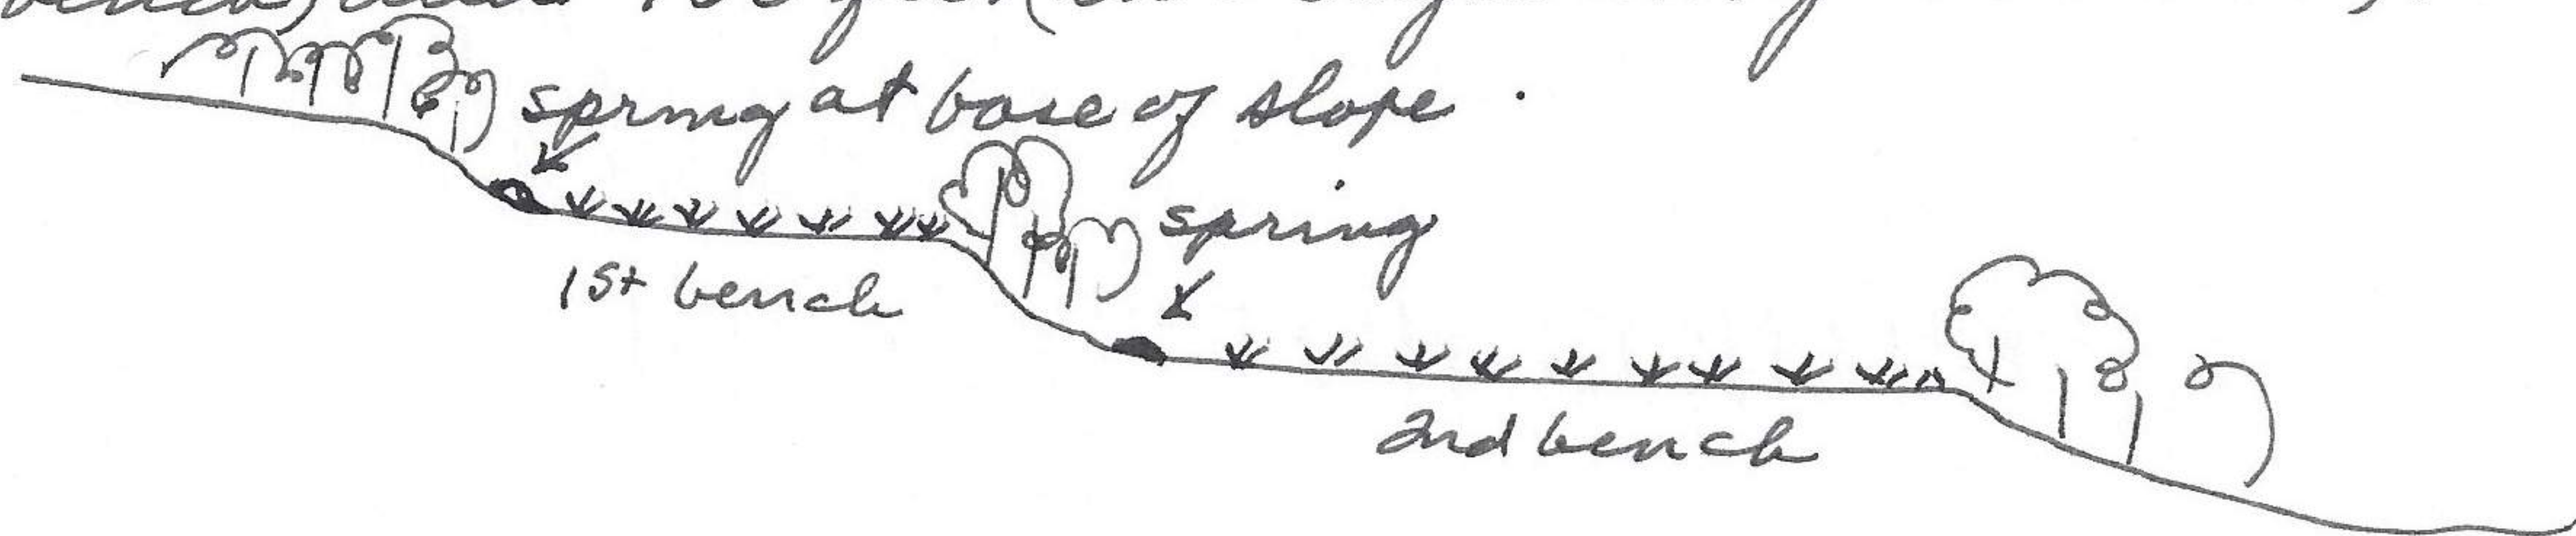 spring at base of slope.
spring
1st bench
2nd bench